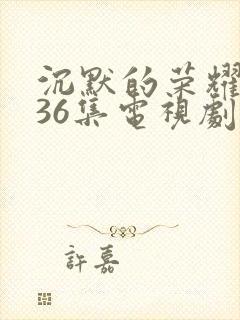 沉默的荣耀
36集電視劇
許嘉